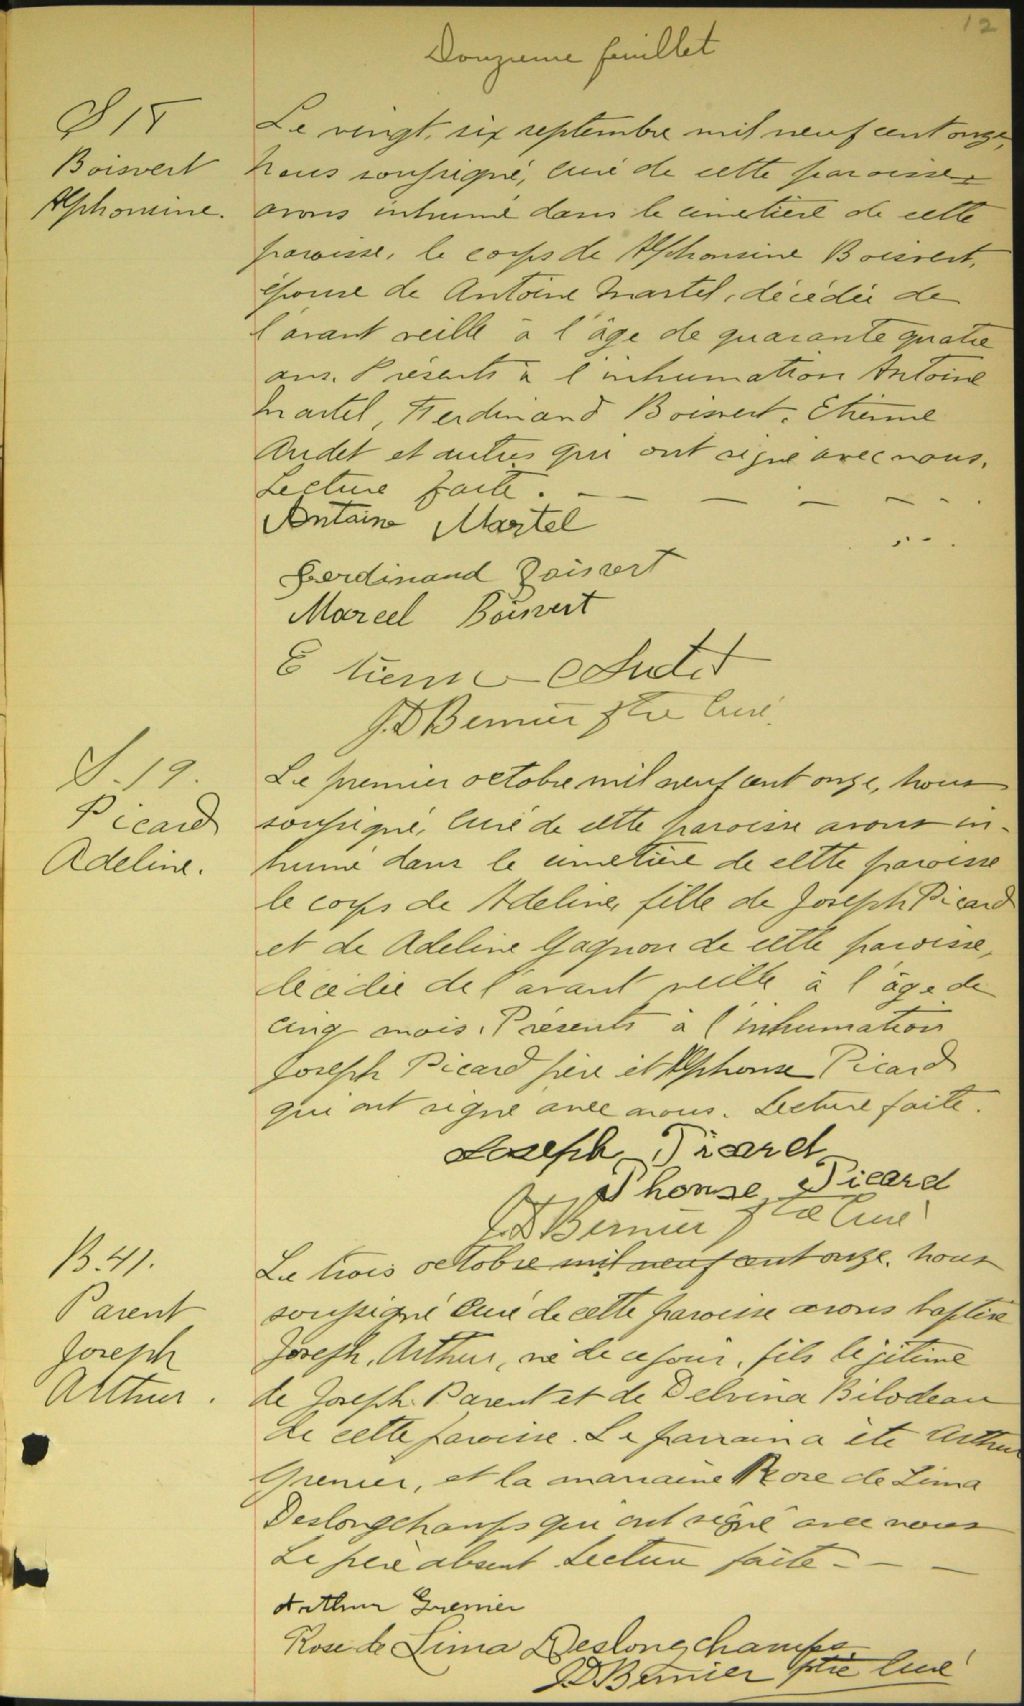 12
Douzieme feuillet
S 18
Boisvert
Alphonsine.
Le vingt-six septembre mil neuf cent onze,
Nous soussigné, curé de cette paroisse
avons inhumé dans le cimetière de cette
paroisse, le corps de Alphonsine Boisvert,
épouse de Antoine Martel, décédée de
l'avant veille à l'âge de quarante quatre
ans. Présents à l'inhumation Antoine
Martel, Ferdinand Boisvert, Etienne
Audet et autres qui ont signé avec nous.
Lecture faite.
Antoine Martel
Ferdinand Boisvert
Marcel Boisvert
Etienne Audet
J.D Bernier ptre Curé.
S-19.
Picard
Adeline.
Le premier octobre mil neuf cent onze, nous
soussigné, curé de cette paroisse avons in-
humé dans le cimetière de cette paroisse
le corps de Adeline, fille de Joseph Picard
et de Adeline Gagnon de cette paroisse,
décédée de l'avant veille à l'âge de
cinq mois. Présents à l'inhumation
Joseph Picard père et Alphonse Picard
qui ont signé avec nous. Lecture faite.
Joseph Picard
Phonse Picard
J.D Bernier ptre Curé
B.41.
Parent
Joseph
Arthur.
Le trois octobre mil neuf cent onze, nous
soussigné curé de cette paroisse avons baptisé
Joseph, Arthur, né de ce jour, fils légitime
de Joseph Parent et de Delvina Bilodeau
de cette paroisse. Le parrain a été Arthur
Grenier, et la marraine Rose de Lima
Deslongchamps qui ont signé avec nous
Le père absent. Lecture faite - - -
Arthur Grenier
Rose de Lima Deslongchamps
J.D Bernier ptre Curé